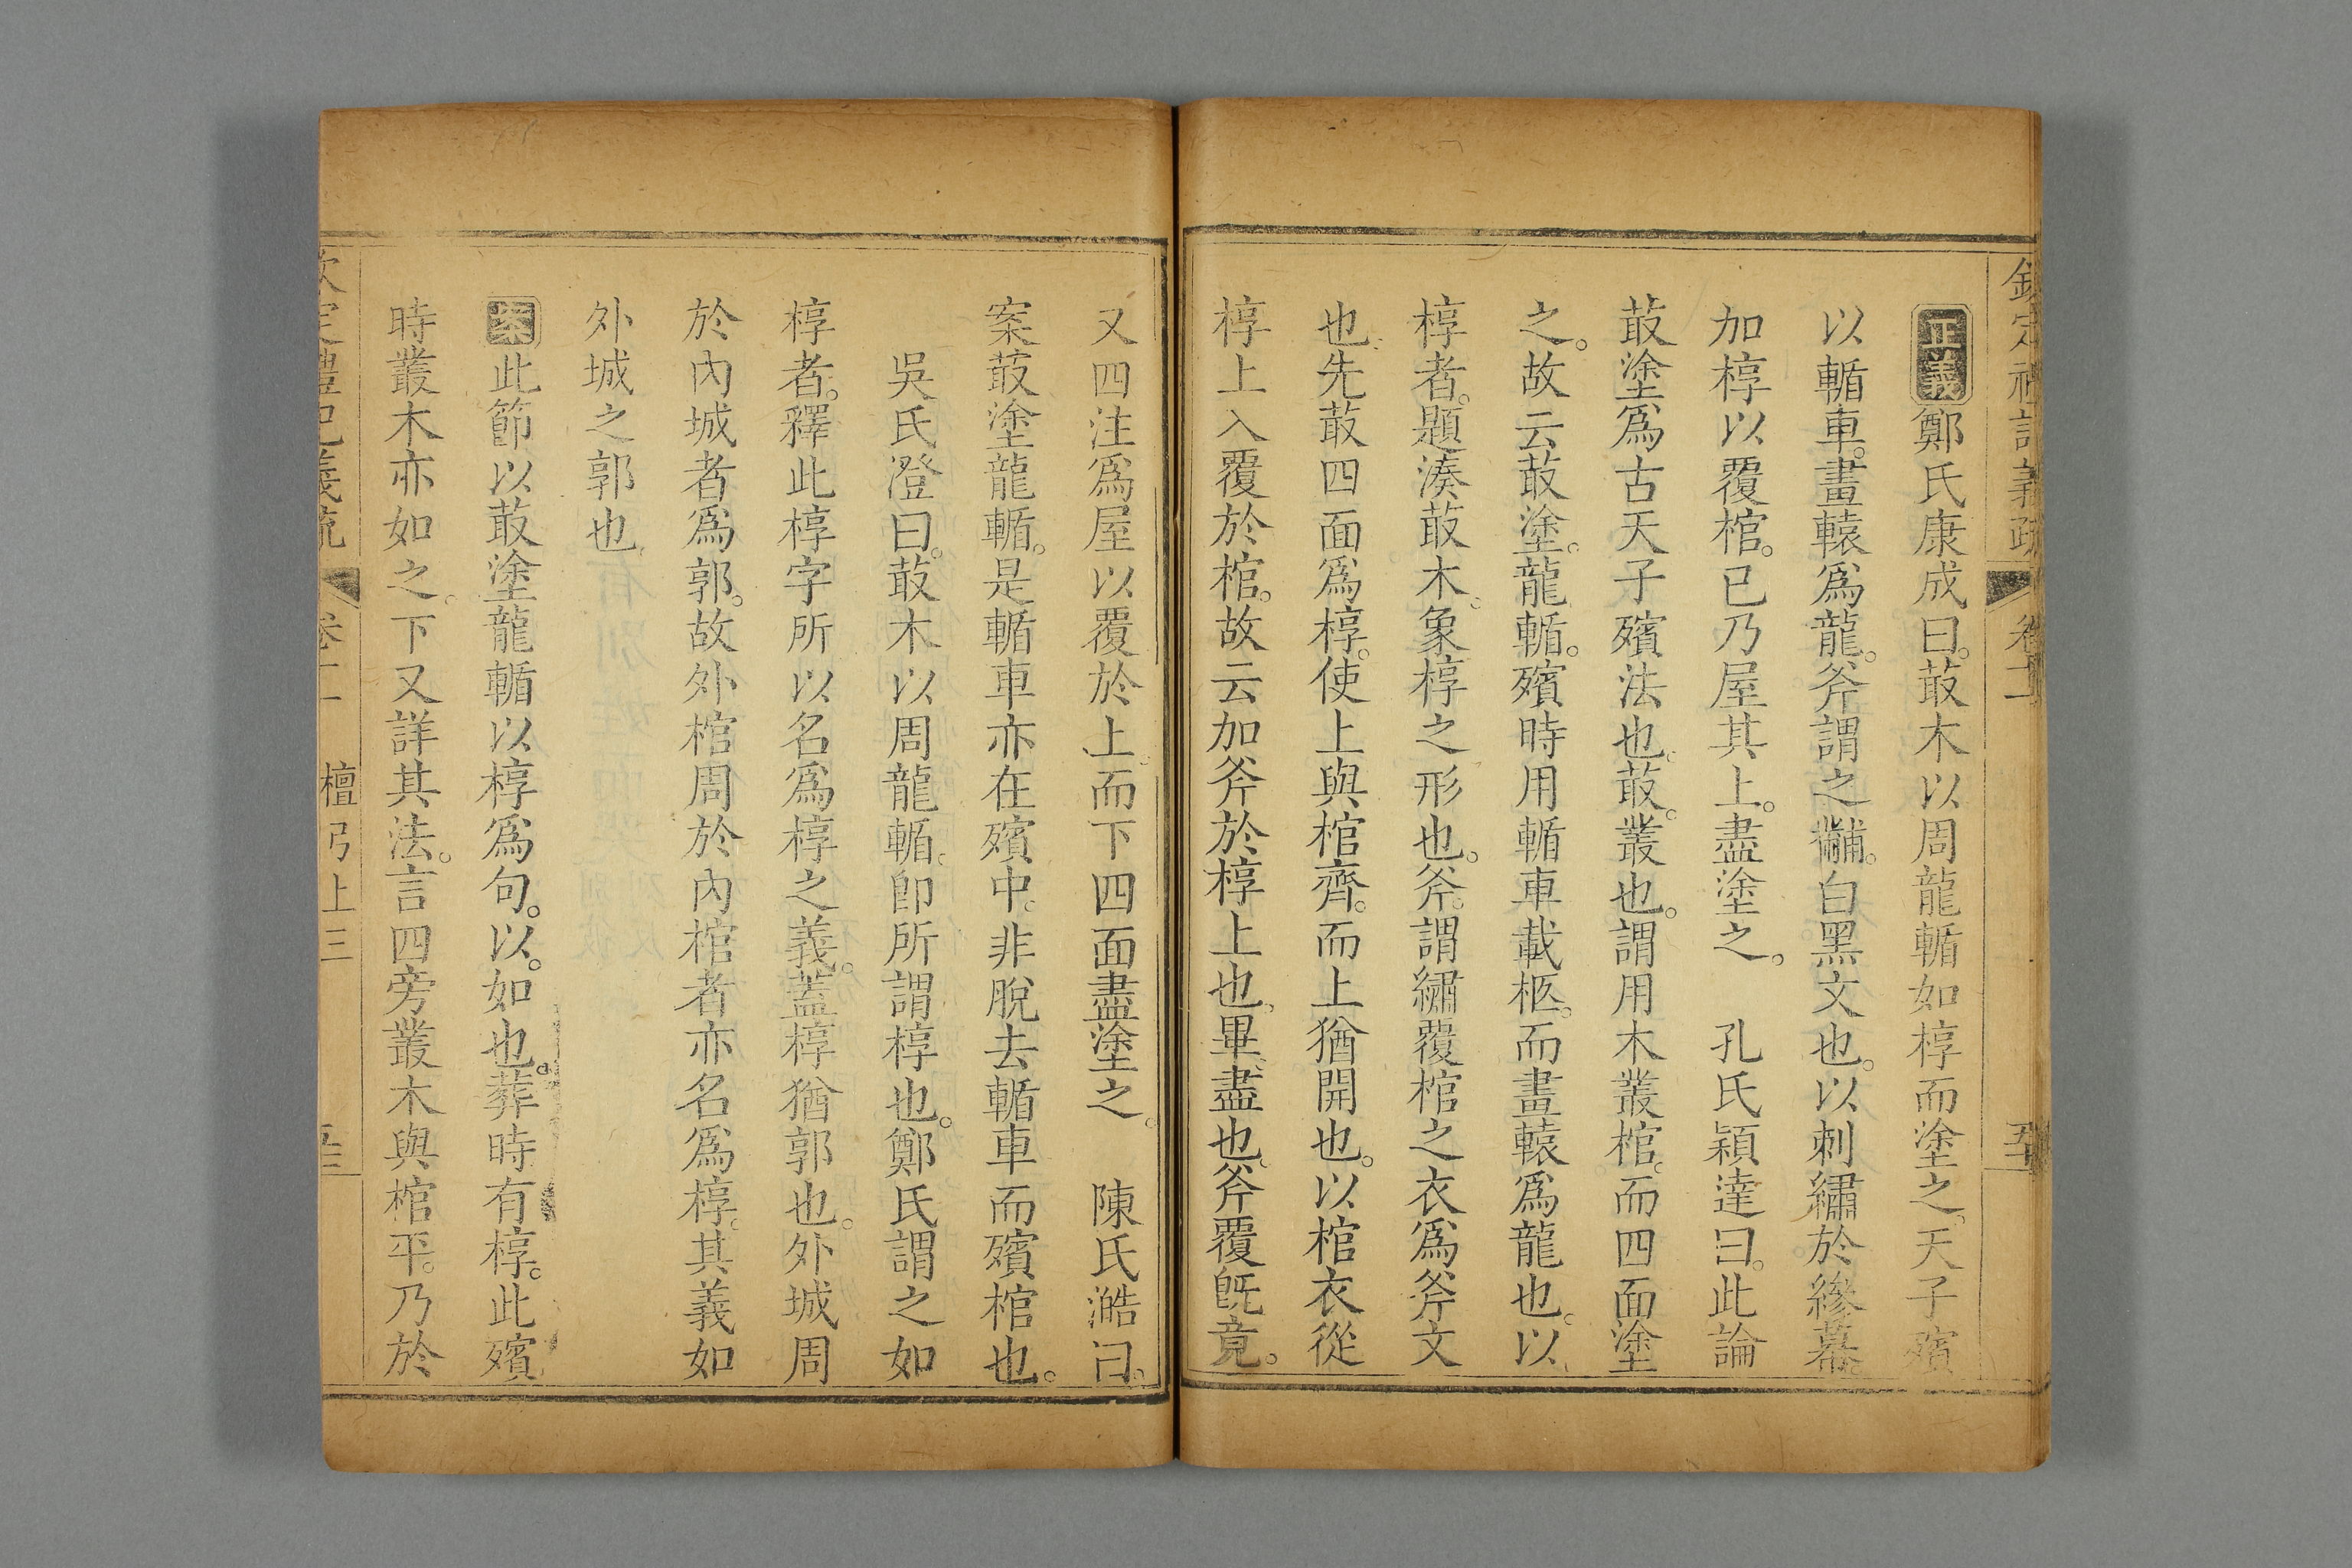 欽定禮記義疏 卷十一
正義鄭氏康成曰。菆木以周龍輴如椁而塗之。天子殯
以輴車。畫轅爲龍。斧謂之黼。白黑文也。以刺繡於縿幕。
加椁以覆棺。已乃屋其上。盡塗之。 孔氏穎達曰。此論
菆塗爲古天子殯法也。菆。叢也。謂用木叢棺。而四面塗
之。故云菆塗。龍輴。殯時用輴車載柩。而畫轅爲龍也。以
椁者。題湊菆木。象椁之形也。斧。謂繡覆棺之衣爲斧文
也。先菆四面爲椁。使上與棺齊。而上猶開也。以棺衣從
椁上入覆於棺。故云加斧於椁上也。畢。盡也。斧覆旣竟。
又四注爲屋以覆於上。而下四面盡塗之。 陳氏澔曰。
案菆塗龍輴。是輴車亦在殯中。非脫去輴車而殯棺也。
吳氏澄曰。菆木以周龍輴。卽所謂椁也。鄭氏謂之如
椁者。釋此椁字所以名爲椁之義。蓋椁猶郭也。外城周
於內城者爲郭。故外棺周於內棺者亦名爲椁。其義如
外城之郭也。
案此節以菆塗龍輴以椁爲句。以。如也。葬時有椁。此殯
時叢木亦如之。下又詳其法。言四旁叢木與棺平。乃於
欽定禮記義疏 卷十一 檀弓上三